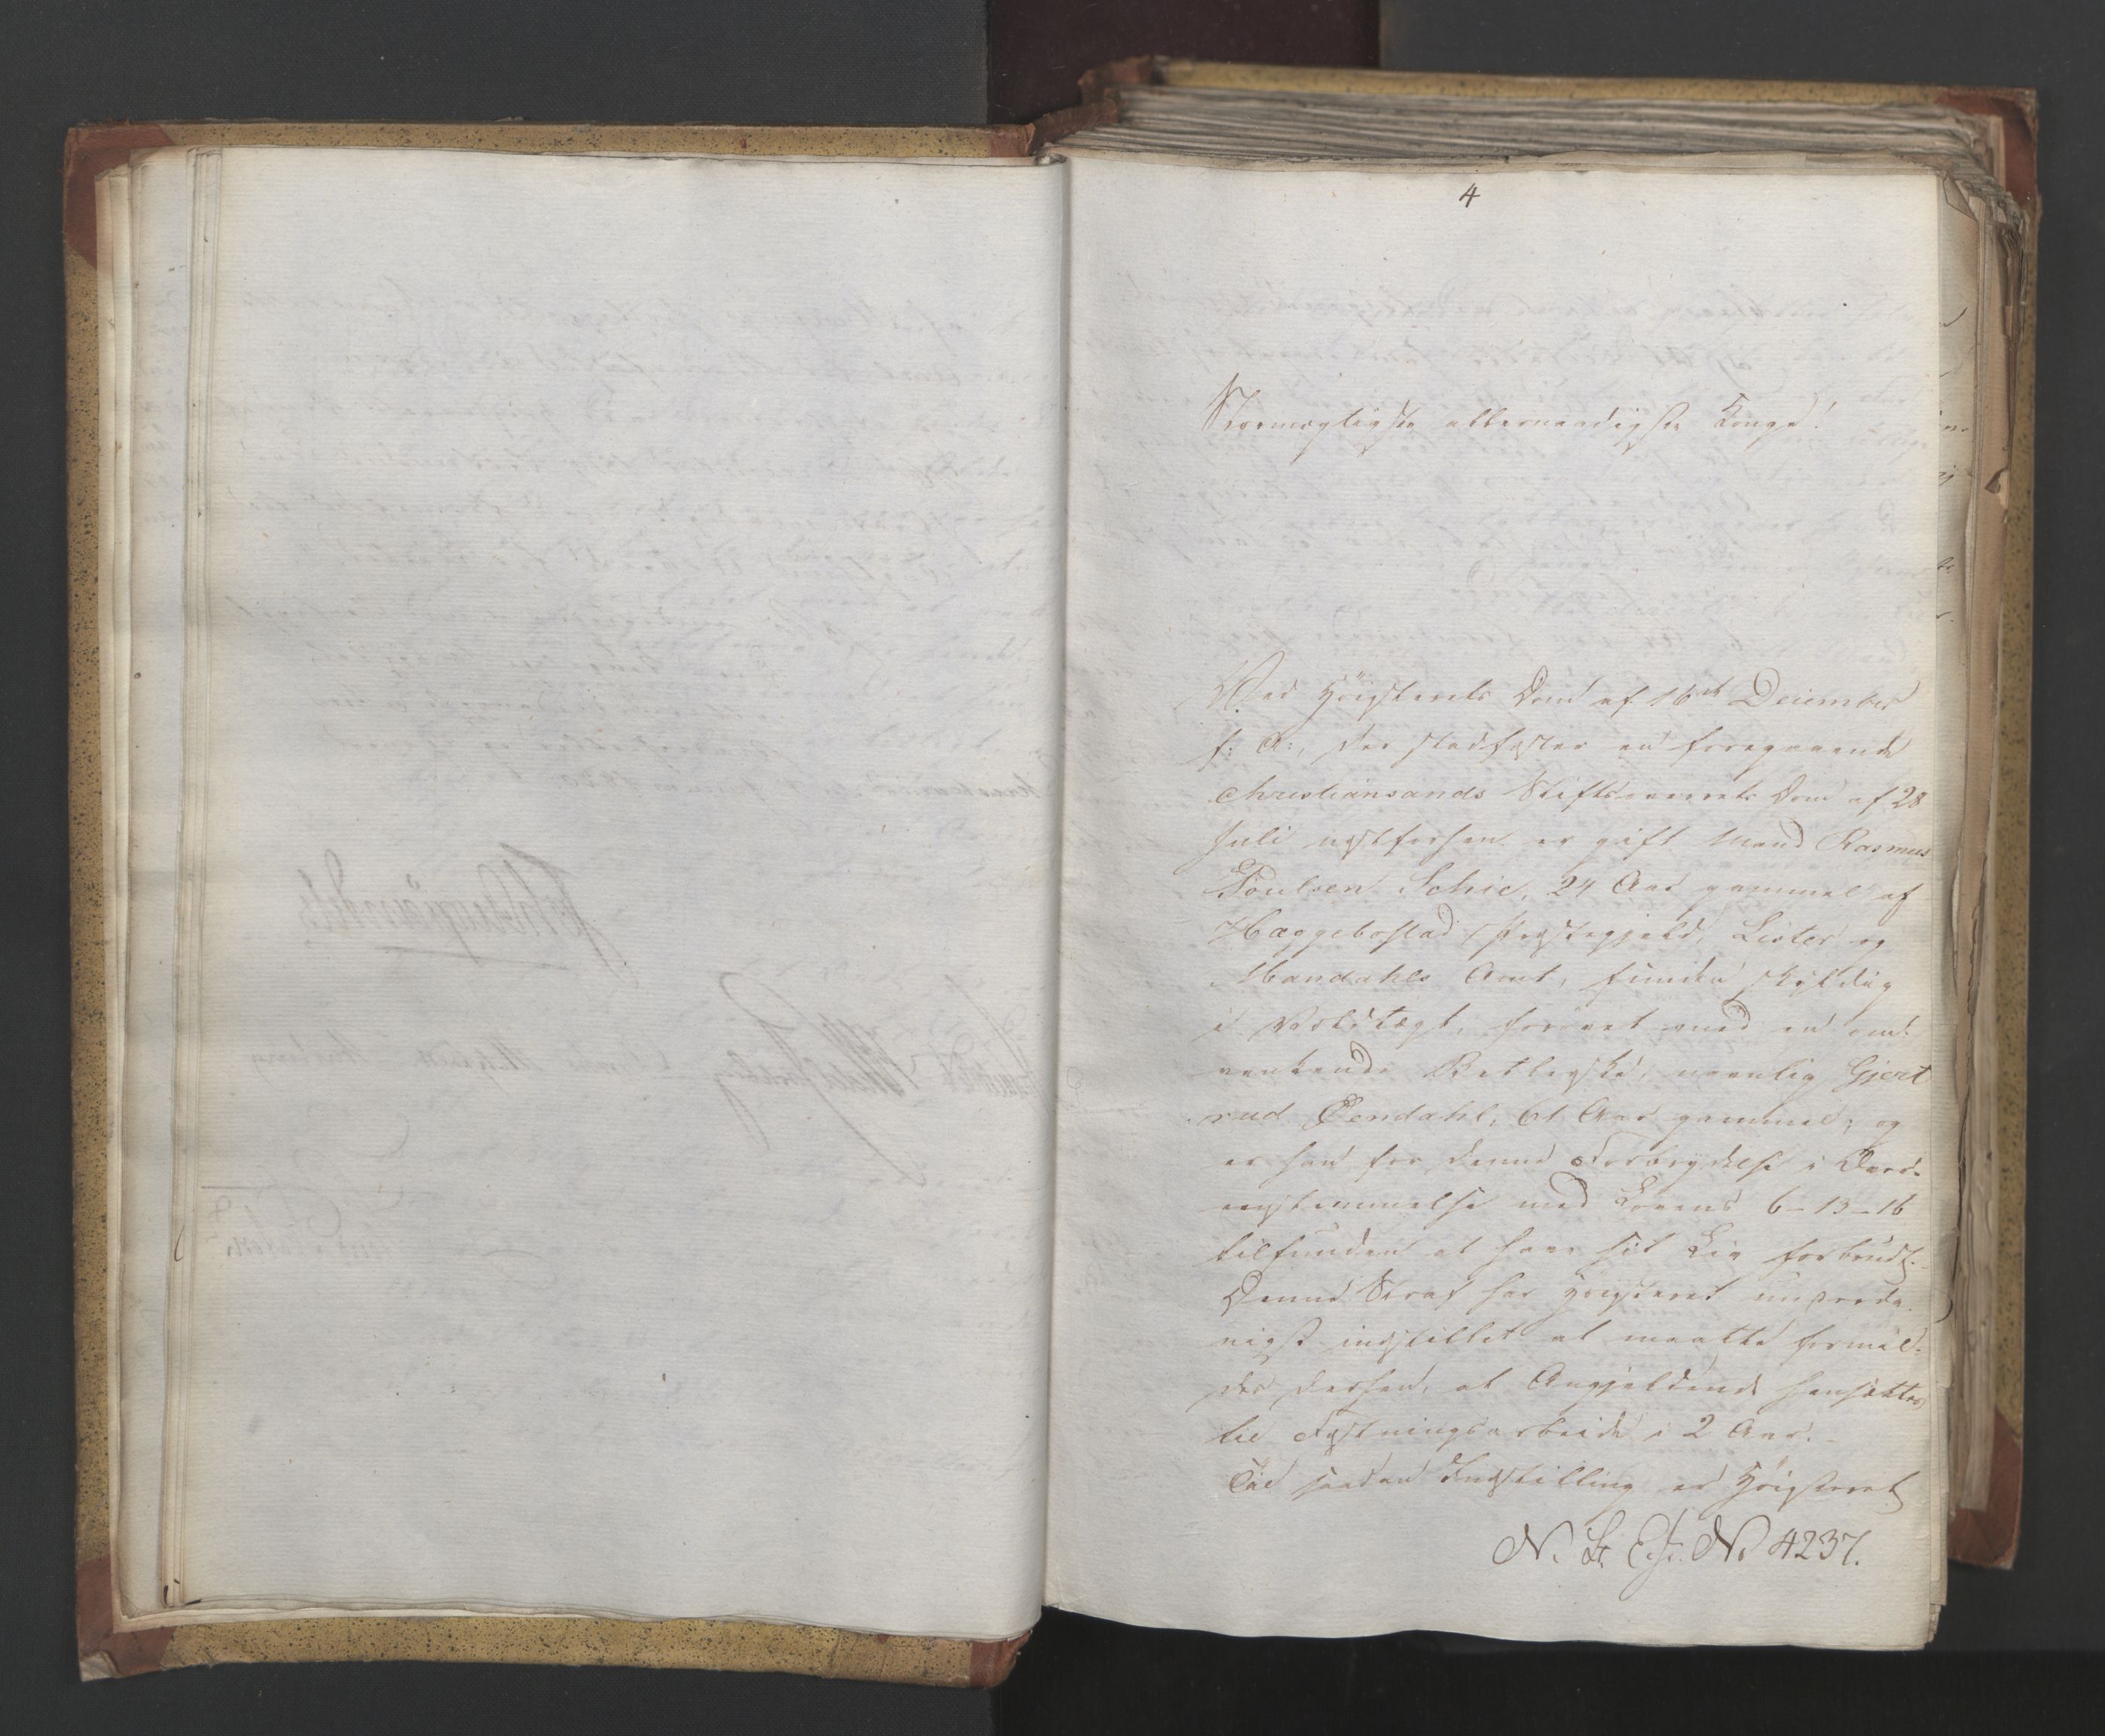 4
Stormægtigste allernaadigste Konge!
Ved Høiesterets Dom af 16de December
f: A:, der stadfæster en foregaaende
Christiansands Stiftsoverrets Dom af 28
Juli næstforhen er gift Mand Rasmus
Poulsen Schie, 24 Aar gammel af
Hæggebostad Præstegjeld, Lister og
Mandahls Amt, funden skyldig
i Voldtægt, forøvet mod en om-
vankende Betlerske, navnlig Gjert
rud Øendahl, 61 Aar gammel, og
er han for denne Forbrydelse i Over-
eensstemmelse med Lovens 6-13-16
tilfunden at have sit Liv forbrudt.
Denne Straf har Høiesteret underda-
nigst indstillet at maatte formil-
des derhen, at Angjeldende hensættes
til Fæstningsarbeide i 2 Aar. -
Til saadan Indstilling er Høiesteret
N. St. Ex. No 4237.